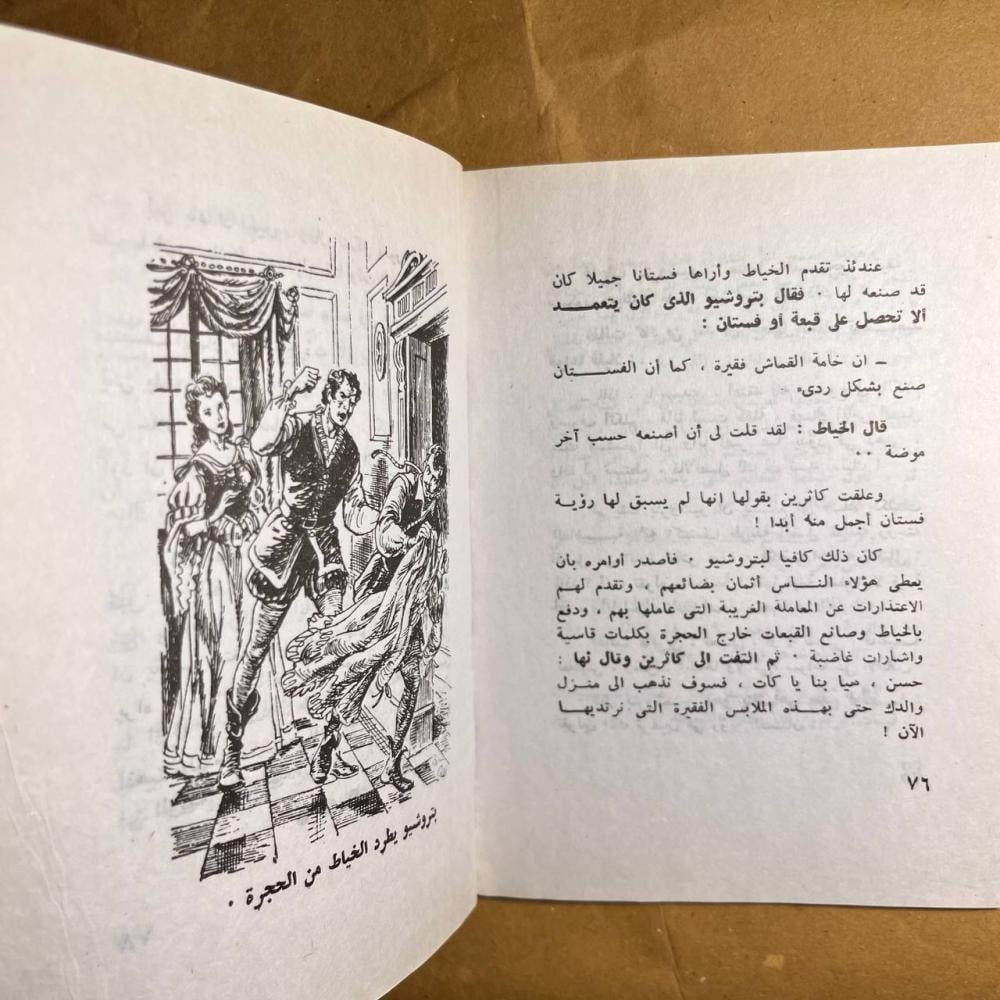 عندئذ تقدم الخياط وأراها فستانا جميلا كان
قد صنعه لها . فقال بتروشيو الذى كان يتعمد
ألا تحصل على قبعة أو فستان :
ــ ان خامة القماش فقيرة ، كما أن الفستان
صنع بشكل ردىء .
قال الخياط : لقد قلت لى أن أصنعه حسب آخر
موضة ..
وعلقت كاثرين بقولها انها لم يسبق لها رؤية
فستان أجمل منه أبدا !
كان ذلك كافيا لبتروشيو . فاصدر أوامره بأن
يعطى هؤلاء الناس أثمان بضائعهم ، وتقدم لهم
الاعتذارات عن المعاملة الغريبة التى عاملها بهم ، ودفع
بالخياط وصانع القبعات خارج الحجرة بكلمات قاسية
واشارات غاضبة . ثم التفت الى كاثرين وقال لها :
حسن ، هيا بنا يا كات ، فسوف نذهب الى منزل
والدك حتى بهذه الملابس الفقيرة التى نرتديها
الآن !
٧٦
بتروشيو يطرد الخياط من الحجرة .